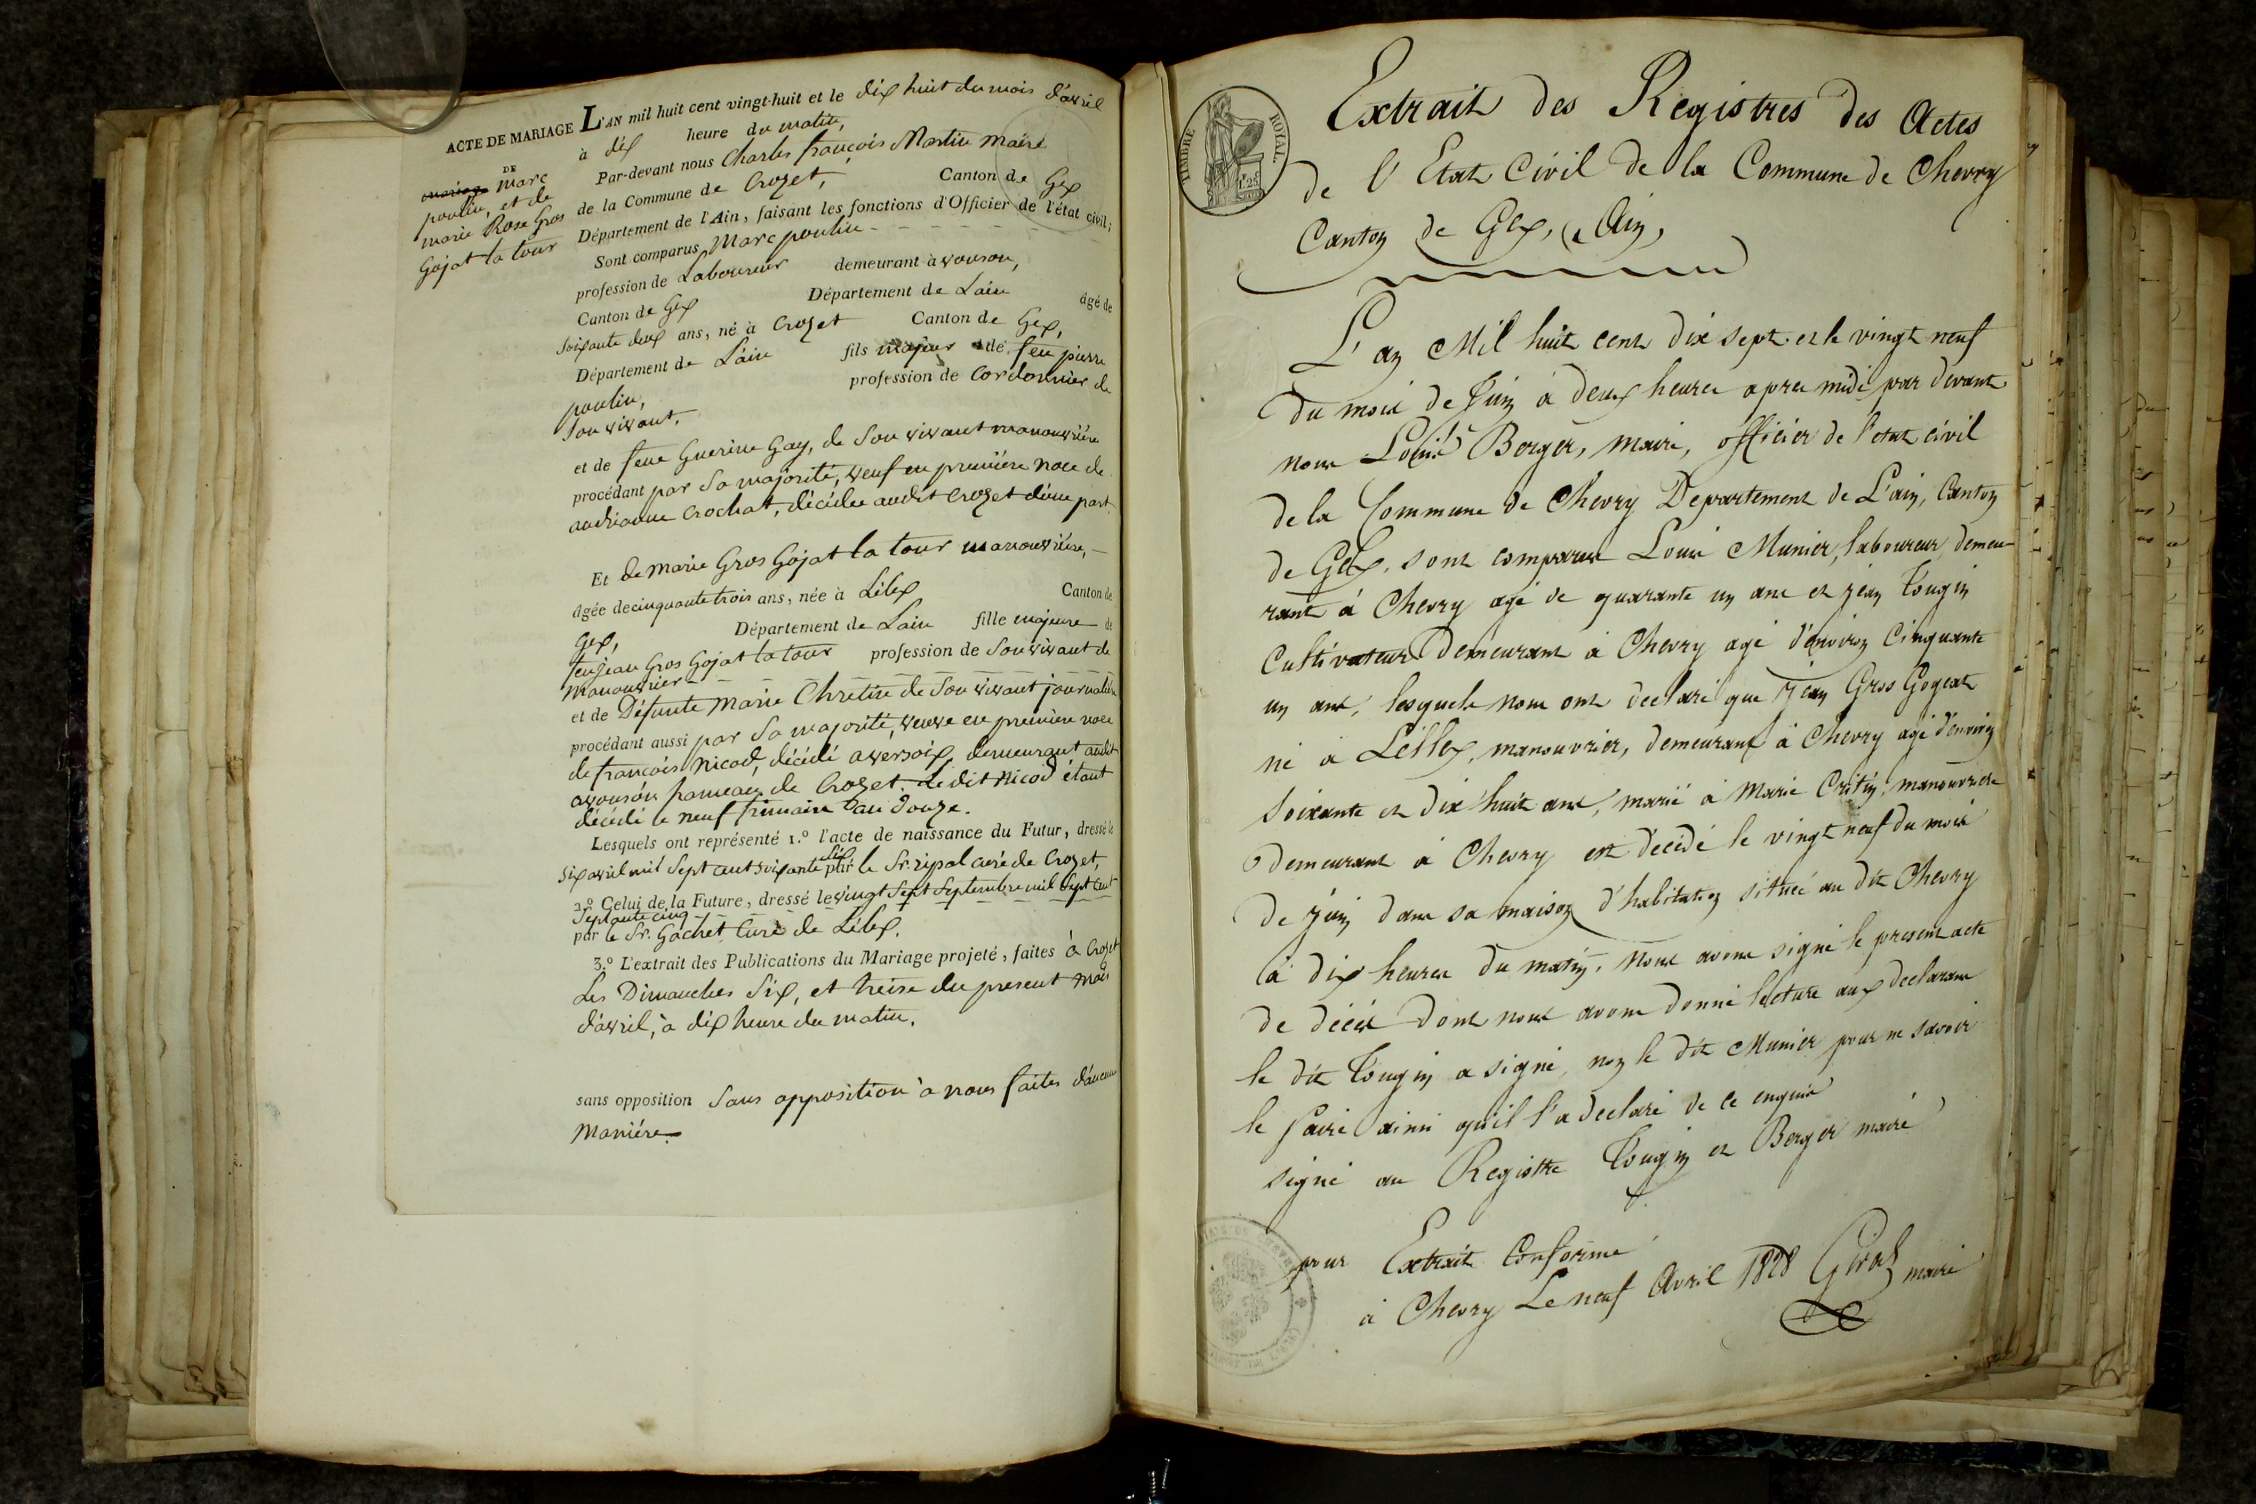 ACTE DE MARIAGE L'AN mil huit cent vingt-huit et le dix huit du mois d'avril
à dix heure du matin,
DE
mariage Marc
poulin, et de
marie Rose Gros
Gojat la tour
Par-devant nous Charles françois Martin maire
de la Commune de Crozet, Canton de Gex
Département de l'Ain, faisant les fonctions d'Officier de l'état civil;
Sont comparus Marc poulin
profession de Laboureur demeurant à avouson,
Canton de Gex Département de Lain âgé de
soixante deux ans, né à Crozet Canton de Gex,
Département de L'ain fils majeur de feu pierre
poulin, profession de Cordonnier de
son vivant.
et de feue Guerine Gay, de son vivant manouvrière
procédant par sa majorité, veuf en première noce de
andréanne Crochat, décédée audit Crozet d'une part.
Et de marie Gros Gojat la tour manouvrière,
âgée de cinquante trois ans, née à Lélex Canton de
Gex, Département de Lain fille majeure de
feu jean Gros Gojat la tour profession de son vivant de
manouvrier
et de Défunte Marie Chretin de son vivant journalière
procédant aussi par sa majorité, veuve en première noce
de françois Nicod, décédé a versoix, demeurant audit
avouson hameau de Crozet. Le dit Nicod étant
décédé le neuf frimaire an douze.
Lesquels ont représenté 1.º l'acte de naissance du Futur, dressé le
six avril mil sept cent soixante six par le Sr. ripal curé de Crozet,
2.º Celui de la Future, dressé le vingt sept septembre mil sept cent
septante cinq
par le Sr. Gachet Curé de Lélex.
3.º L'extrait des Publications du Mariage projeté, faites à Crozet
Les Dimanches six, et treise du present mois
d'avril, à dix heure du matin.
sans opposition sans opposition à nous faites d'aucune
Manière.
TIMBRE ROYAL.
Extrait des Registres des Actes
de l'Etat Civil de la Commune de Chevry
Canton de Gex, (Ain)
L'an Mil huit cent dix sept et le vingt neuf
du mois de Juin à deux heures apres midi par devant
nous Louis Berger, maire, officier de l'etat civil
de la Commune de Chevry Departement de L'ain, Canton
de Gex, sont comparus Louis Munier, laboureur, demeu-
rant à Chevry agé de quarante un ans et jean Tougin
Cultivateur Demeurant à Chevry agé d'environ Cinquante
un ans, lesquels nous ont declaré que jean Gros Gogeat
né à Lellex, manouvrier, demeurant à Chevry agé d'environ
soixante et dix huit ans, marié à Marie Critin, manouvriere
demeurant à Chevry est décédé le vingt neuf du mois
de juin dans sa maison d'habitation située au dit Chevry
à dix heures du matin. Nous avons signé le present acte
de décès dont nous avons donné lecture aux declarans
le dit Tougin a signé, non le dit Munier pour ne savoir
le faire ainsi qu'il l'a declaré de ce enquis
signé au Registre Tougin et Berger maire
pour Extrait Conforme
à Chevry Le neuf Avril 1828 Girod maire